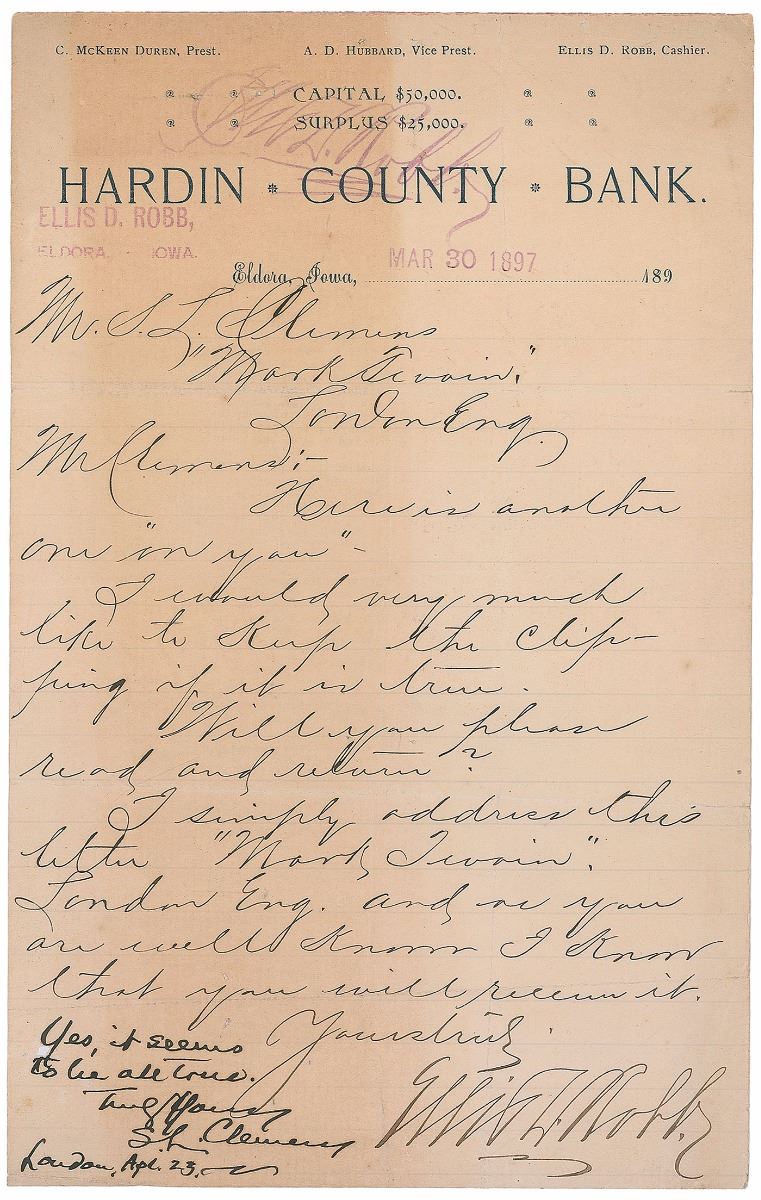 C. McKeen Duren, Prest. A. D. Hubbard, Vice Prest. Ellis D. Robb, Cashier.
CAPITAL $50,000.
SURPLUS $25,000.
HARDIN * COUNTY * BANK.
ELLIS D. ROBB,
ELDORA. IOWA.
MAR 30 1897
Eldora, Iowa, 189
Mr. S. L. Clemens
"Mark Twain".
London Eng.
Mr Clemens:-
Here is another
one "on you"-
I would very much
like to keep the clip-
ping if it is true.
Will you please
read and return?
I simply address this
letter "Mark Twain".
London Eng. and as you
are well known I know
that you will receive it.
Yours truly
Ellis D. Robb.
Yes, it seems
to be all true.
Truly Yours
S. L. Clemens
London, Apl. 23.